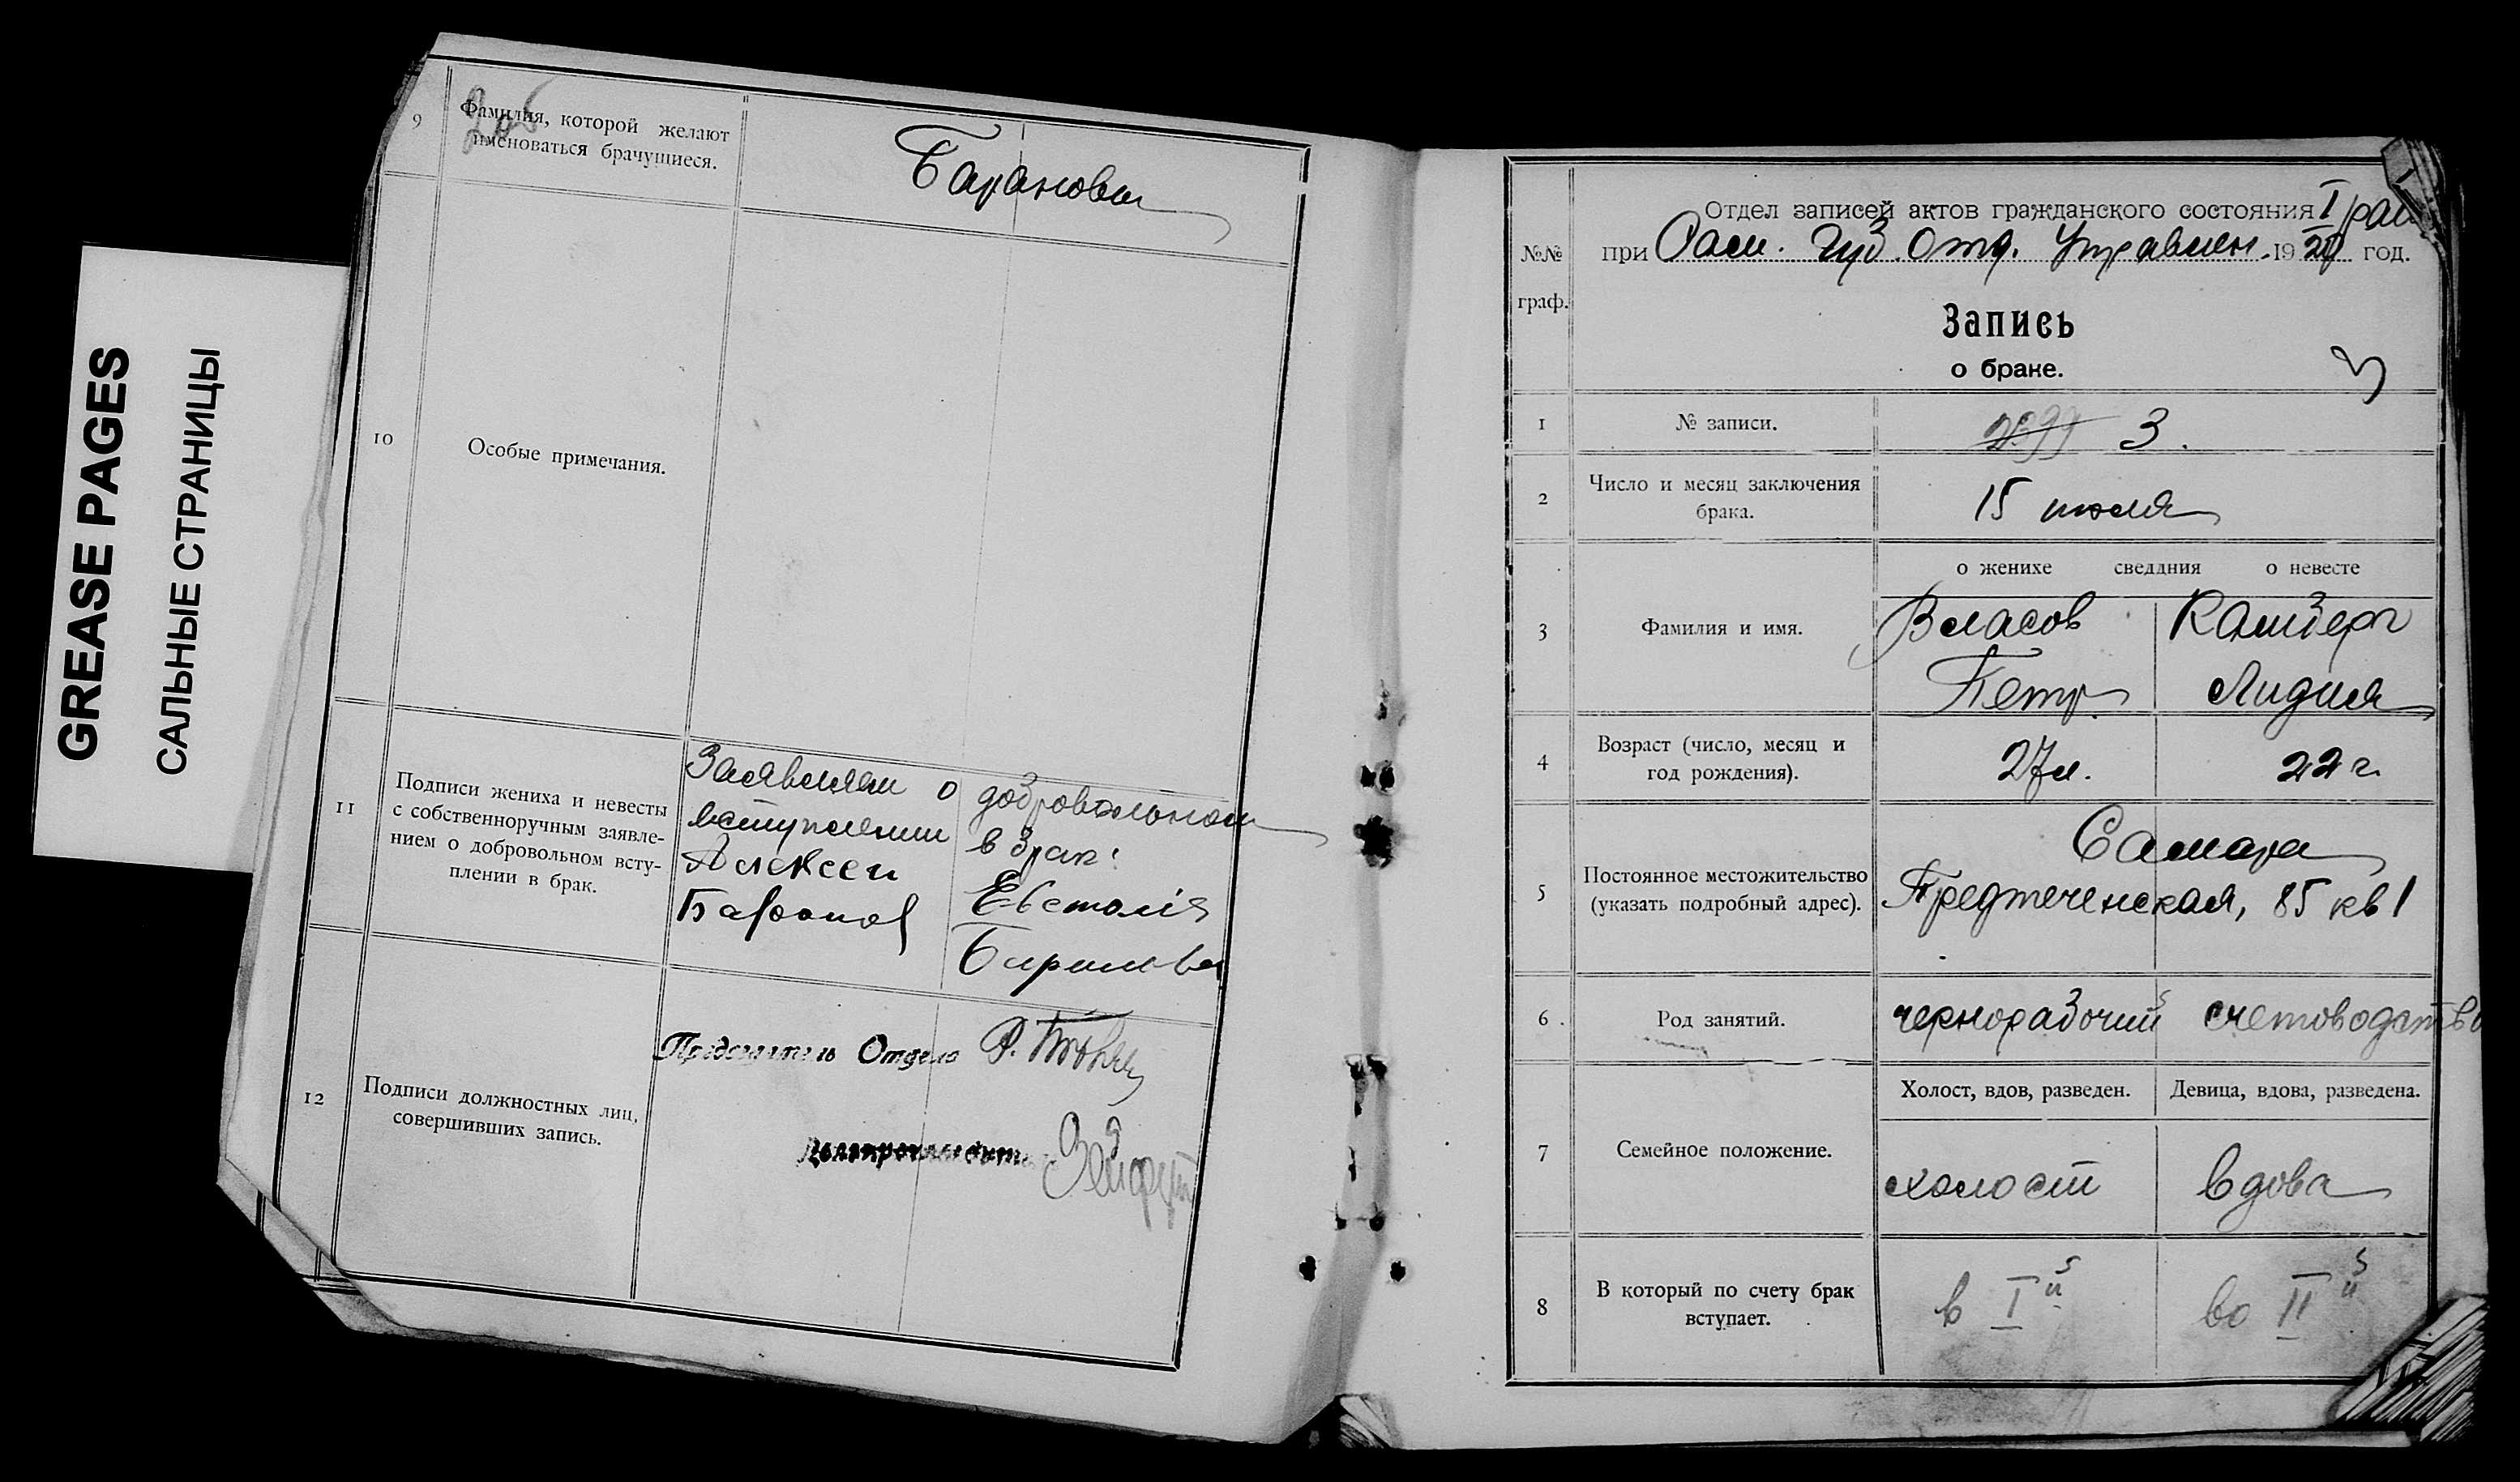 GREASE PAGES
САЛЬНЫЕ СТРАНИЦЫ
9
Фамилия, которой желают
именоваться брачущиеся.
Барановы
10
Особые примечания.
11
Подписи жениха и невесты
с собственноручным заявле-
нием о добровольном всту-
плении в брак.
Заявляем о добровольном
вступлении в брак:
Алексей Евстолія
Баранов
12
Подписи должностных лиц,
совершивших запись.
Отдела
№№
граф.
Отдел записей актов гражданского состояния I рай
при Сам. Губ. Отд. Управлен. 1920 год.
Запись
о браке.
3
1
№ записи.
3.
2
Число и месяц заключения
брака.
15 июля
о женихе сведдния о невесте
3
Фамилия и имя.
Власов Камберг
Петр Лидия
4
Возраст (число, месяц и
год рождения).
27л. 22 г.
5
Постоянное местожительство
(указать подробный адрес).
Самара
Предтеченская, 85 кв 1
6.
Род занятий.
чернорабочий счетоводство
Холост, вдов, разведен. Девица, вдова, разведена.
7
Семейное положение.
холост вдова
8
В который по счету брак
вступает.
в I й во II й